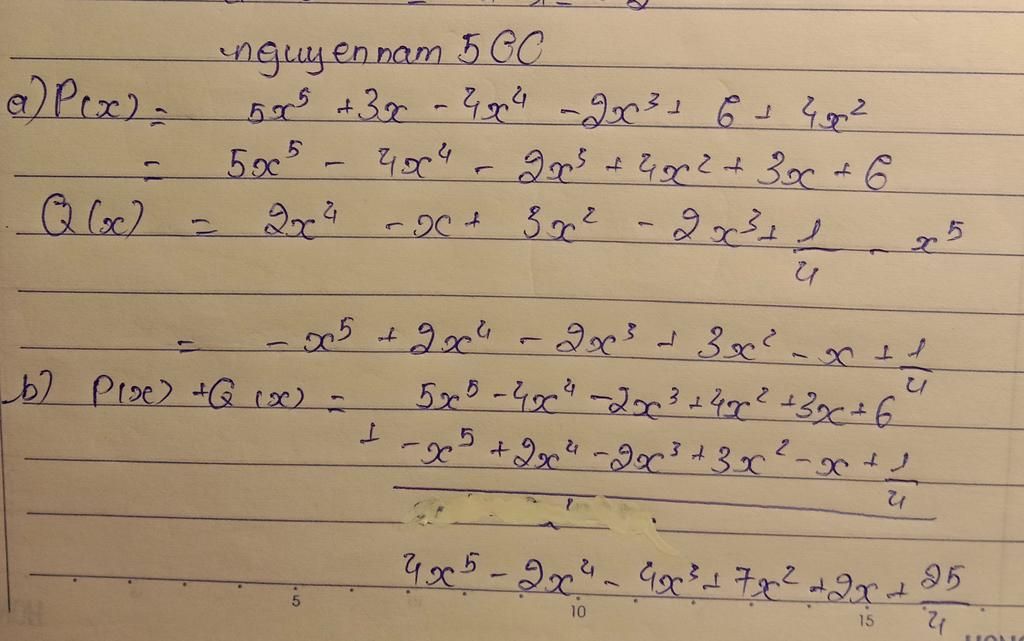 nguyennam 5GC
a) P(x) = 5x⁵ + 3x - 4x⁴ - 2x³ + 6 + 4x²
= 5x⁵ - 4x⁴ - 2x³ + 4x² + 3x + 6
Q(x) = 2x⁴ - x + 3x² - 2x³ + 1/4 - x⁵
= -x⁵ + 2x⁴ - 2x³ + 3x² - x + 1/4
b) P(x) + Q(x) = 5x⁵ - 4x⁴ - 2x³ + 4x² + 3x + 6
+ -x⁵ + 2x⁴ - 2x³ + 3x² - x + 1/4
4x⁵ - 2x⁴ - 4x³ + 7x² + 2x + 25/4
5 10 15